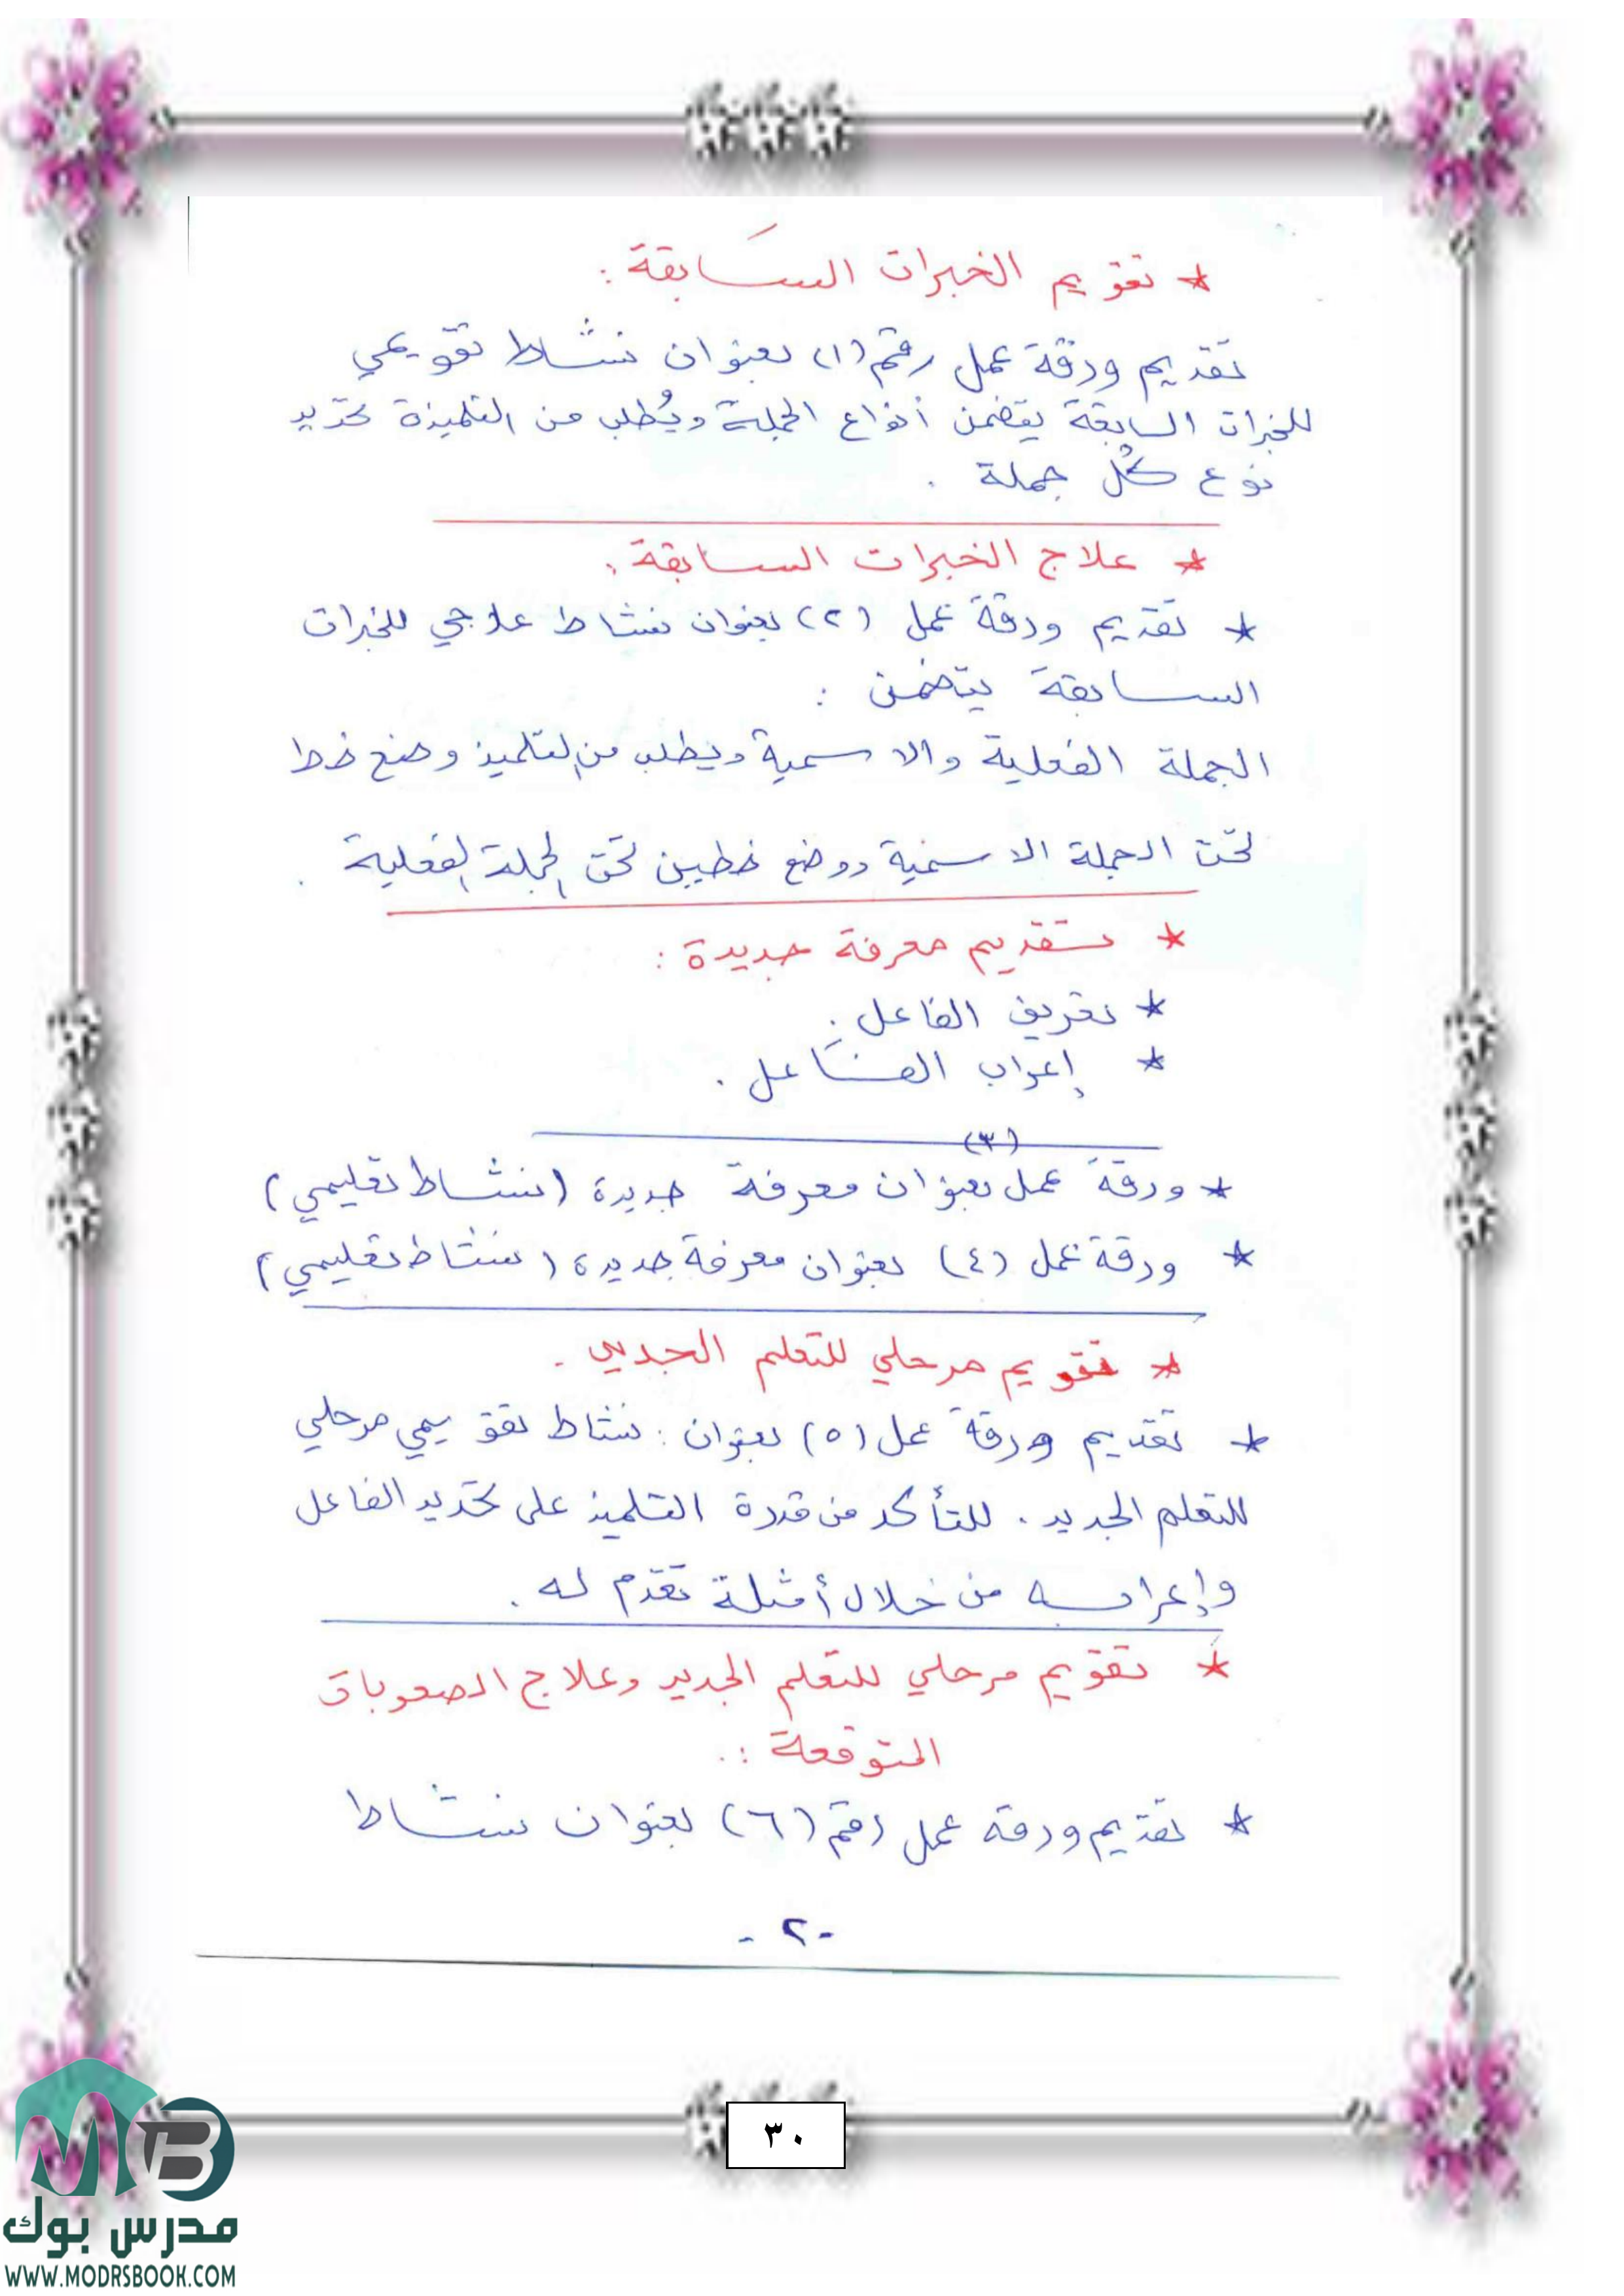 * تقويم الخبرات السَابقة :
تقديم ورقة عمل رقم (١) بعنوان نشاط تقويمي
للخبرات السابقة يتضمن أنواع الجملة ويُطلب من التلميذة تحديد
نوع كل جملة .
* علاج الخبرات السابقة :
* تقديم ورقة عمل (٢) بعنوان نشاط علاجي للخبرات
السابقة يتضمن :
الجملة الفعلية والاسمية ويطلب من التلميذ وضع خط
تحت الجملة الاسمية ووضع خطين تحت الجملة الفعلية .
* تقديم معرفة جديدة :
* تعريف الفاعل .
* إعراب الفاعل .
(٣)
* ورقة عمل بعنوان معرفة جديدة (نشاط تعليمي)
* ورقة عمل (٤) بعنوان معرفة جديدة (نشاط تعليمي)
* تقويم مرحلي للتعلم الجديد .
* تقديم ورقة عمل (٥) بعنوان : نشاط تقويمي مرحلي
للتعلم الجديد . للتأكد من قدرة التلميذ على تحديد الفاعل
وإعرابه من خلال أمثلة تقدم له .
* تقويم مرحلي للتعلم الجديد وعلاج الصعوبات
المتوقعة :.
* تقديم ورقة عمل رقم (٦) بعنوان نشاط
- ٢ -
٣٠
MB
مدرس بوك
WWW.MODRSBOOK.COM